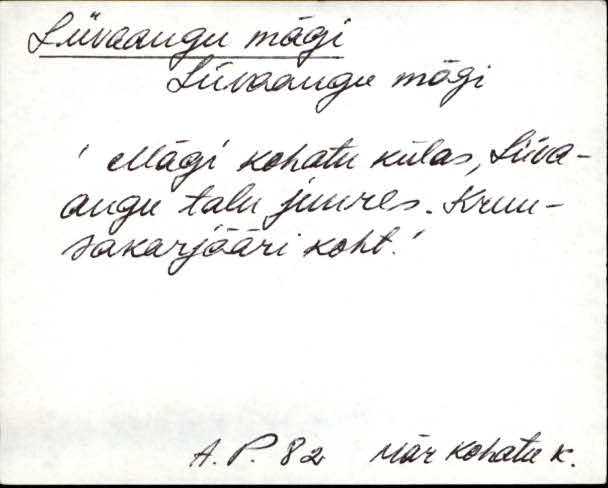 Liivaaugu mägi
Liivaaugu mägi
' Mägi kohatu külas, Liiva-
augu talu juures. Kruu-
sakarjääri koht.'
A. P. 82 Mär Kohatu k.